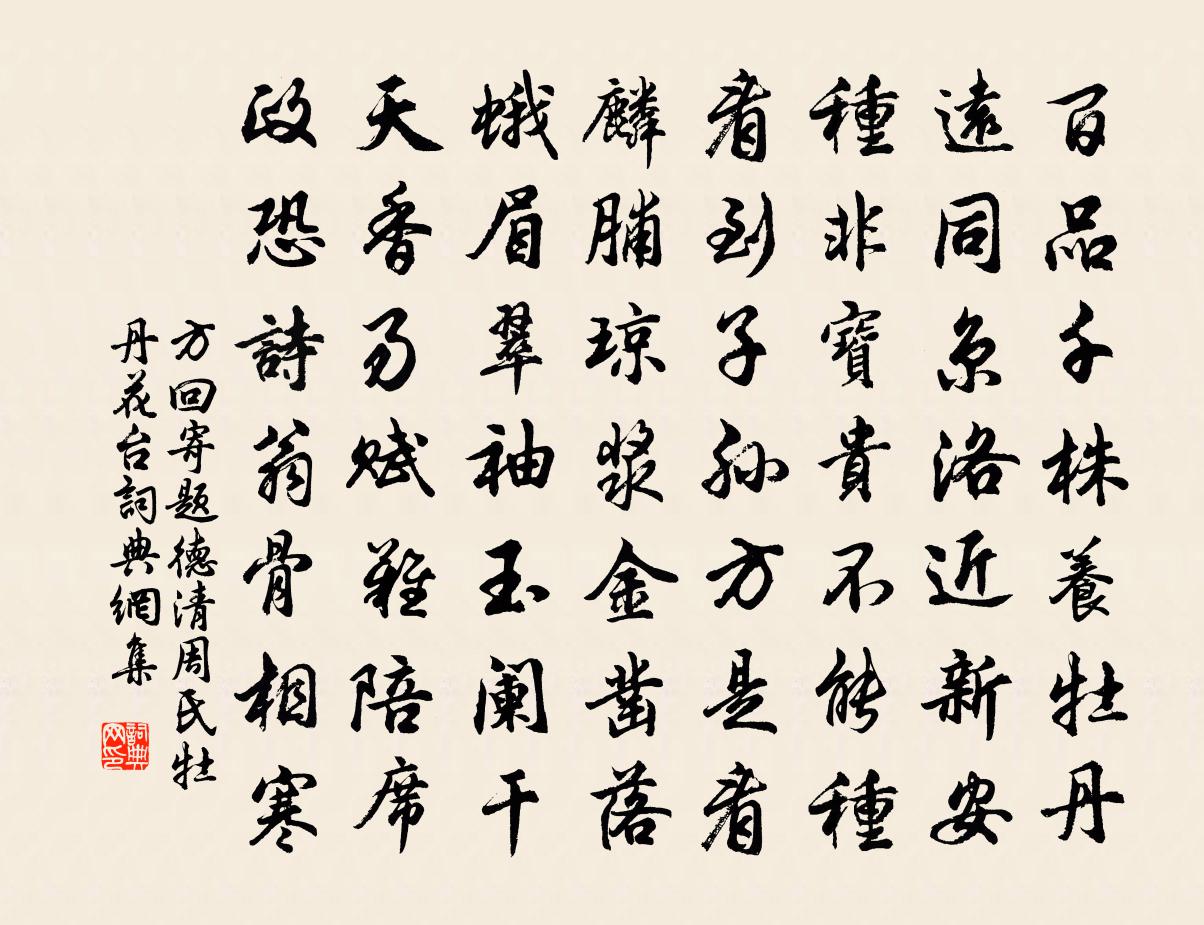 百品千株養牡丹
遠同京洛近新安
種非寶貴不能種
看到子孫方是看
麟脯琼漿金凿落
蛾眉翠袖玉阑干
天香易賦難陪席
政恐詩翁骨相寒
方回寄题德清周氏牡
丹花台詞典網集
詞典网印